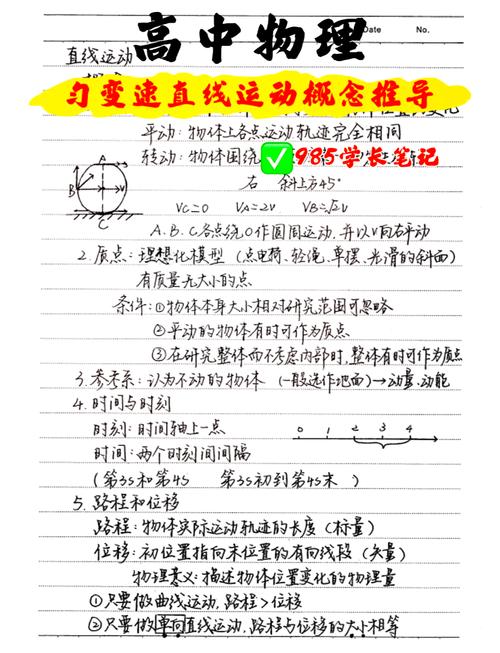 高中物理
Date No.
直线运动
匀变速直线运动概念推导
平动:物体上各点运动轨迹完全相同
转动:物体围绕
985学长笔记
右 斜上方45°
A
B
V
C
Vc=0 VA=2V VB=√2V
A、B、C各点绕O作圆周运动,并以V向右平动
2.质点:理想化模型(点电荷、轻绳、单摆、光滑的斜面)
有质量无大小的点
条件:①物体本身大小相对研究范围可忽略
②平动的物体有时可作为质点
③在研究整体而不考虑内部时,整体有时可作为质点
3.参考系:认为不动的物体(一般选作地面)→动量、动能
4.时间与时刻
时刻:时间轴上一点
0 1 2 3 4
时间:两个时刻间间隔
(第3s和第4s 第3s初到第4s末)
5.路程和位移
路程:物体实际运动轨迹的长度(标量)
位移:初位置指向末位置的有向线段(矢量)
物理意义:描述物体位置变化的物理量
①只要做曲线运动,路程>位移
②只要做单向直线运动,路程与位移的大小相等